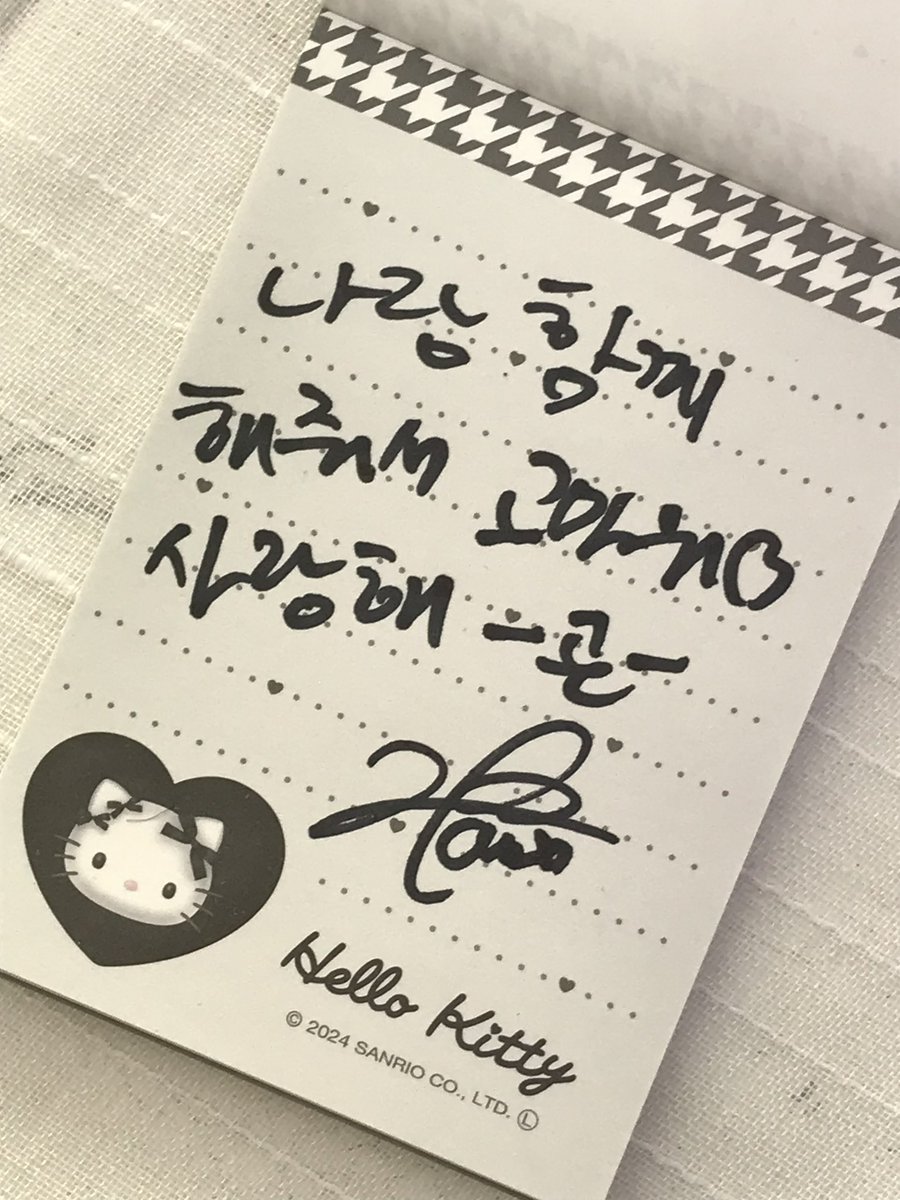 나랑 함께
해줘서 고마워♡
사랑해 -곤-
Hello Kitty
© 2024 SANRIO CO., LTD. Ⓛ